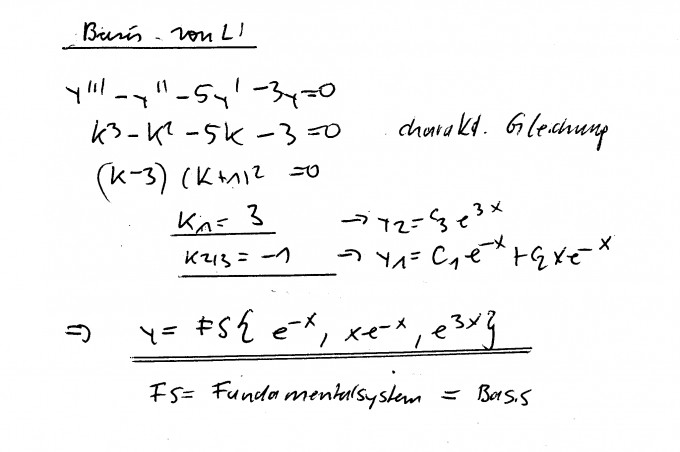 Basis von L!
y''' - y'' - 5y' - 3y = 0
k³ - k² - 5k - 3 = 0 charakt. Gleichung
(k-3) (k+1)² = 0
k₁ = 3 → y₂ = C₃ e^{3x}
k₂/₃ = -1 → y₁ = C₁ e^{-x} + C₂ x e^{-x}
⇒ y = FS{ e^{-x}, x e^{-x}, e^{3x} }
FS = Fundamentalsystem = Basis